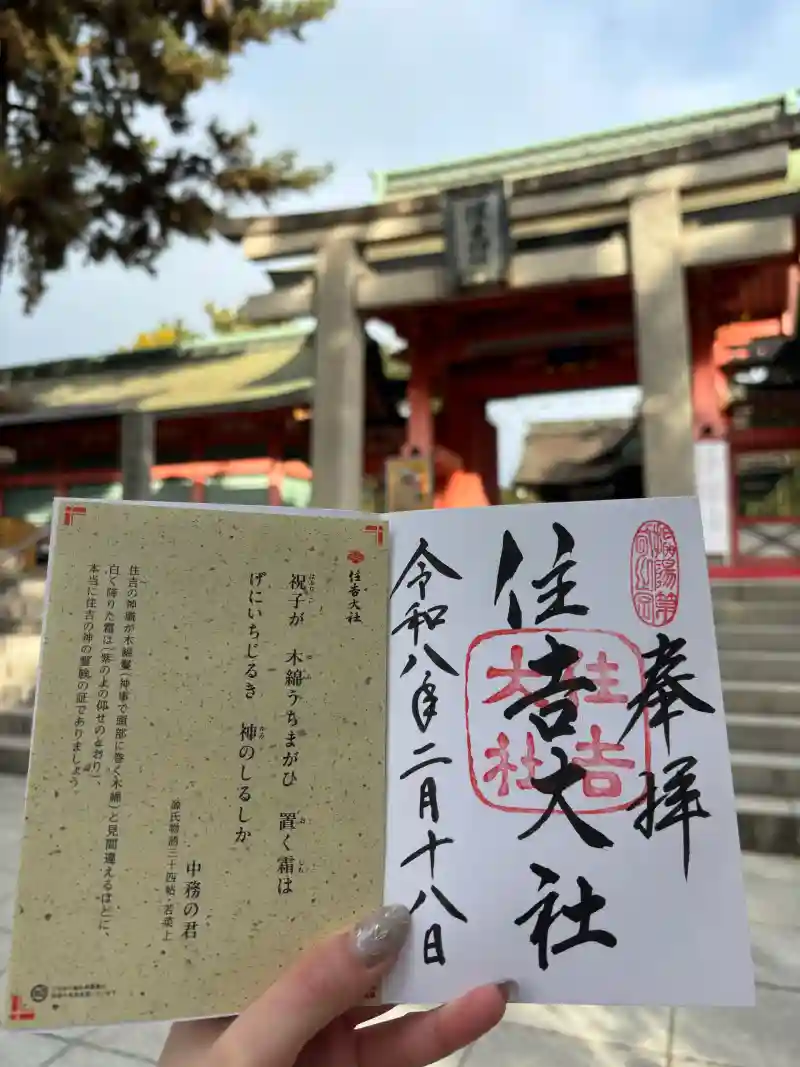 奉拝
住吉大社
住吉大社
令和八年二月十八日
住吉大社
祝子が 木綿うちまがひ 置く霜は
げにいちじるき 神のしるしか
中務の君
源氏物語三十四帖・若菜上
住吉の神職が木綿鬘(神事で頭部に巻く木綿)と見間違えるほどに、
白く降りた霜は(紫の上の仰せのとおり)
本当に住吉の神の霊験の証でありましょう。